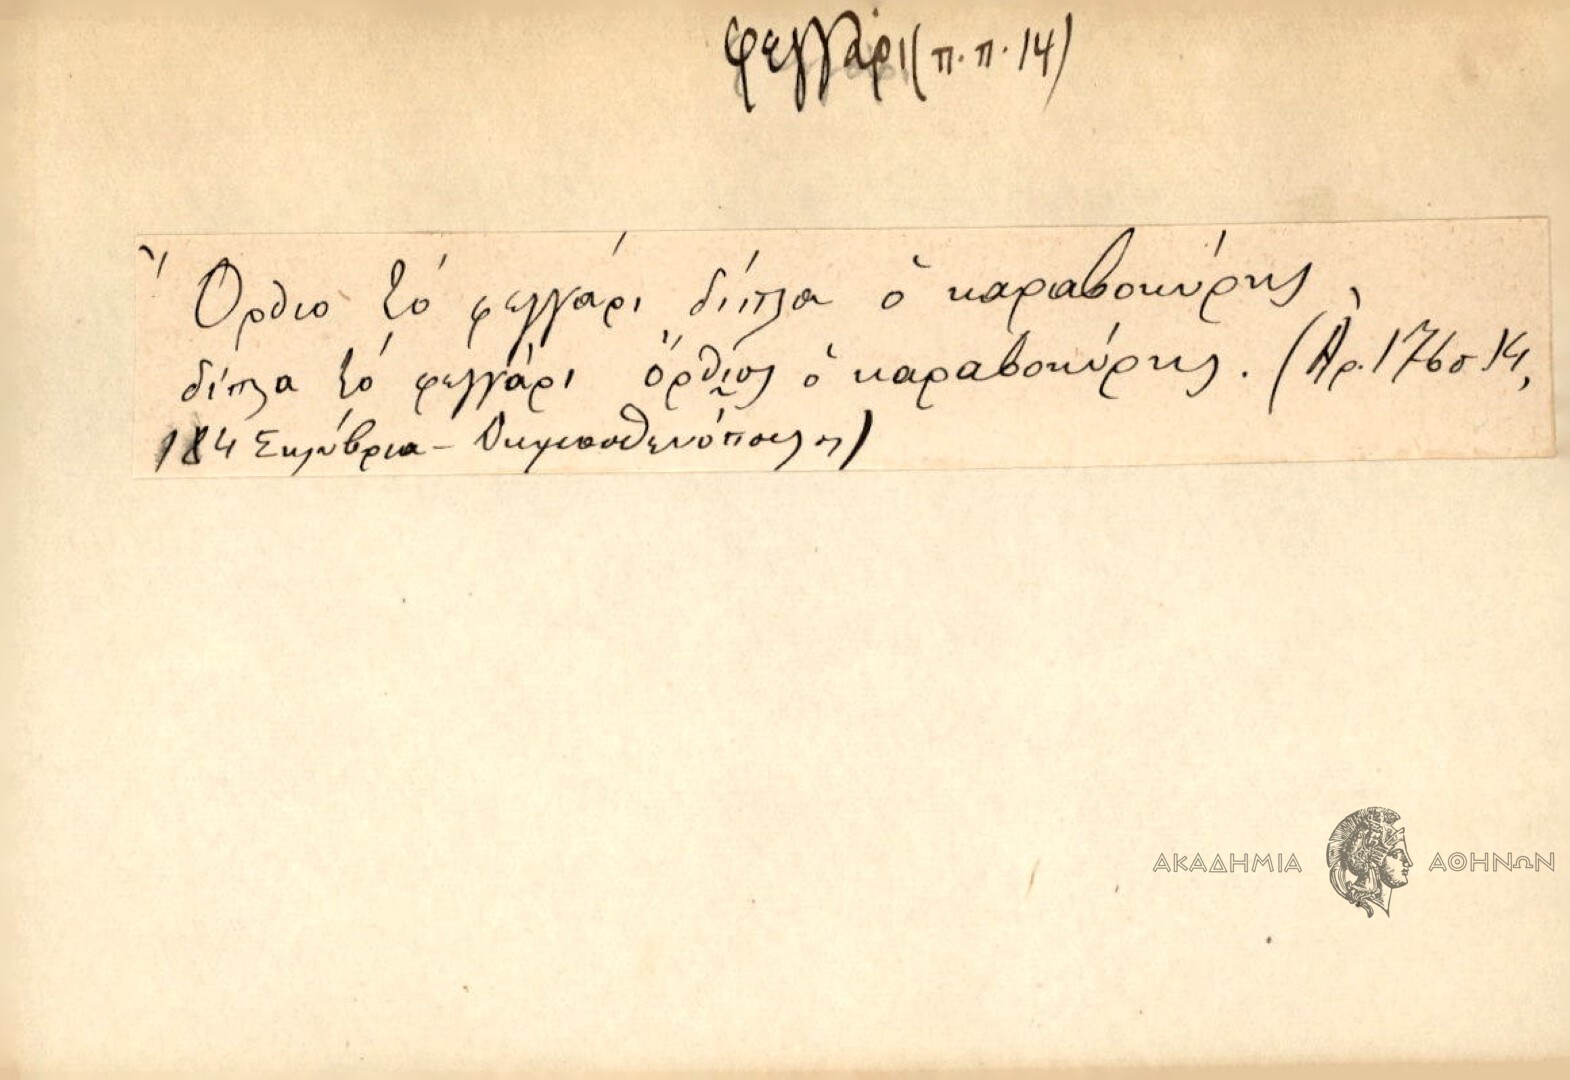 φεγγάρι (π.π. 14)
Ὄρθιο τὸ φεγγάρι δίπλα ὁ καραβοκύρης,
δίπλα τὸ φεγγάρι ὄρθιος ὁ καραβοκύρης. (Ἀρ. 176 σ 14,
184 Σηλύβρια – Δημοσθενόπουλος)
ΑΚΑΔΗΜΙΑ ΑΘΗΝΩΝ